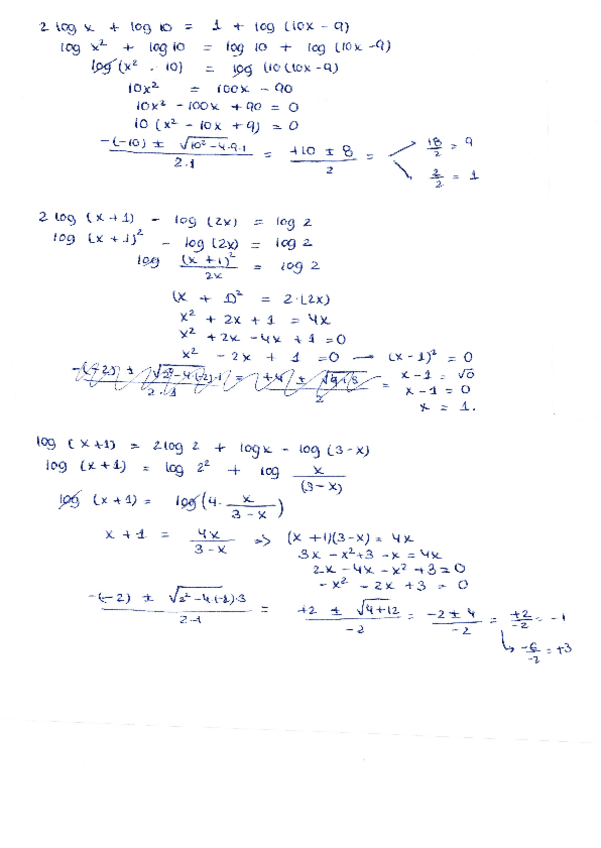 2 log x + log 10 = 1 + log (10x - 9)
log x² + log 10 = log 10 + log (10x - 9)
log (x² · 10) = log (10(10x - 9)
10x² = 100x - 90
10x² - 100x + 90 = 0
10 (x² - 10x + 9) = 0
-(-10) ± √10² - 4·9·1 / 2·1 = +10 ± 8 / 2 = 18/2 = 9
2/2 = 1
2 log (x + 1) - log (2x) = log 2
log (x + 1)² - log (2x) = log 2
log (x + 1)² / 2x = log 2
(x + 1)² = 2·(2x)
x² + 2x + 1 = 4x
x² + 2x - 4x + 1 = 0
x² - 2x + 1 = 0 → (x - 1)² = 0
x - 1 = √0
x - 1 = 0
x = 1.
log (x + 1) = 2 log 2 + log x - log (3 - x)
log (x + 1) = log 2² + log x / (3 - x)
log (x + 1) = log (4 · x / 3 - x)
x + 1 = 4x / 3 - x => (x + 1)(3 - x) = 4x
3x - x² + 3 - x = 4x
2x - 4x - x² + 3 = 0
- x² - 2x + 3 = 0
-(-2) ± √2² - 4·(-1)·3 / 2·1 = +2 ± √4 + 12 / -2 = -2 ± 4 / -2 = +2/-2 = -1
↳ -6/-2 = +3